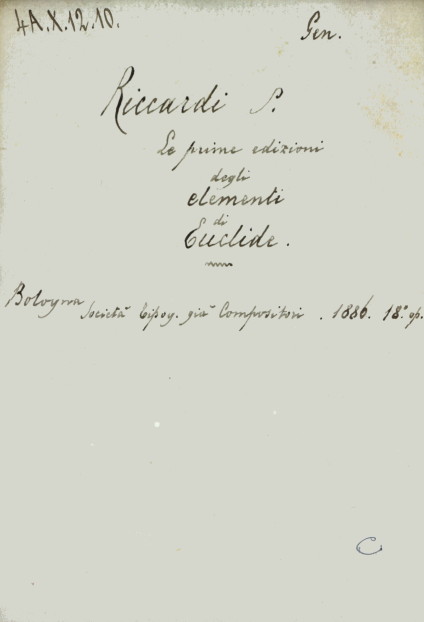 4A.X.12.10.
Gen.
Riccardi P.
Le prime edizioni
degli
elementi
di
Euclide.
Bologna Società Tipog. già Compositori . 1886. 18.° op.
C